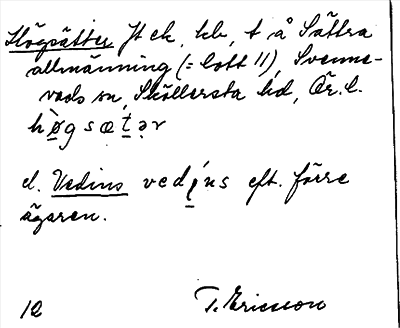 Högsätter Jt ek, kb, t å Sättra
allmänning (= lott 11), Svenne-
vads sn, Sköllersta hd, Ör. l.
hø̀gsæṯər
el. Vedins vedíns eft. förre
ägaren.
12 T. Ericsson